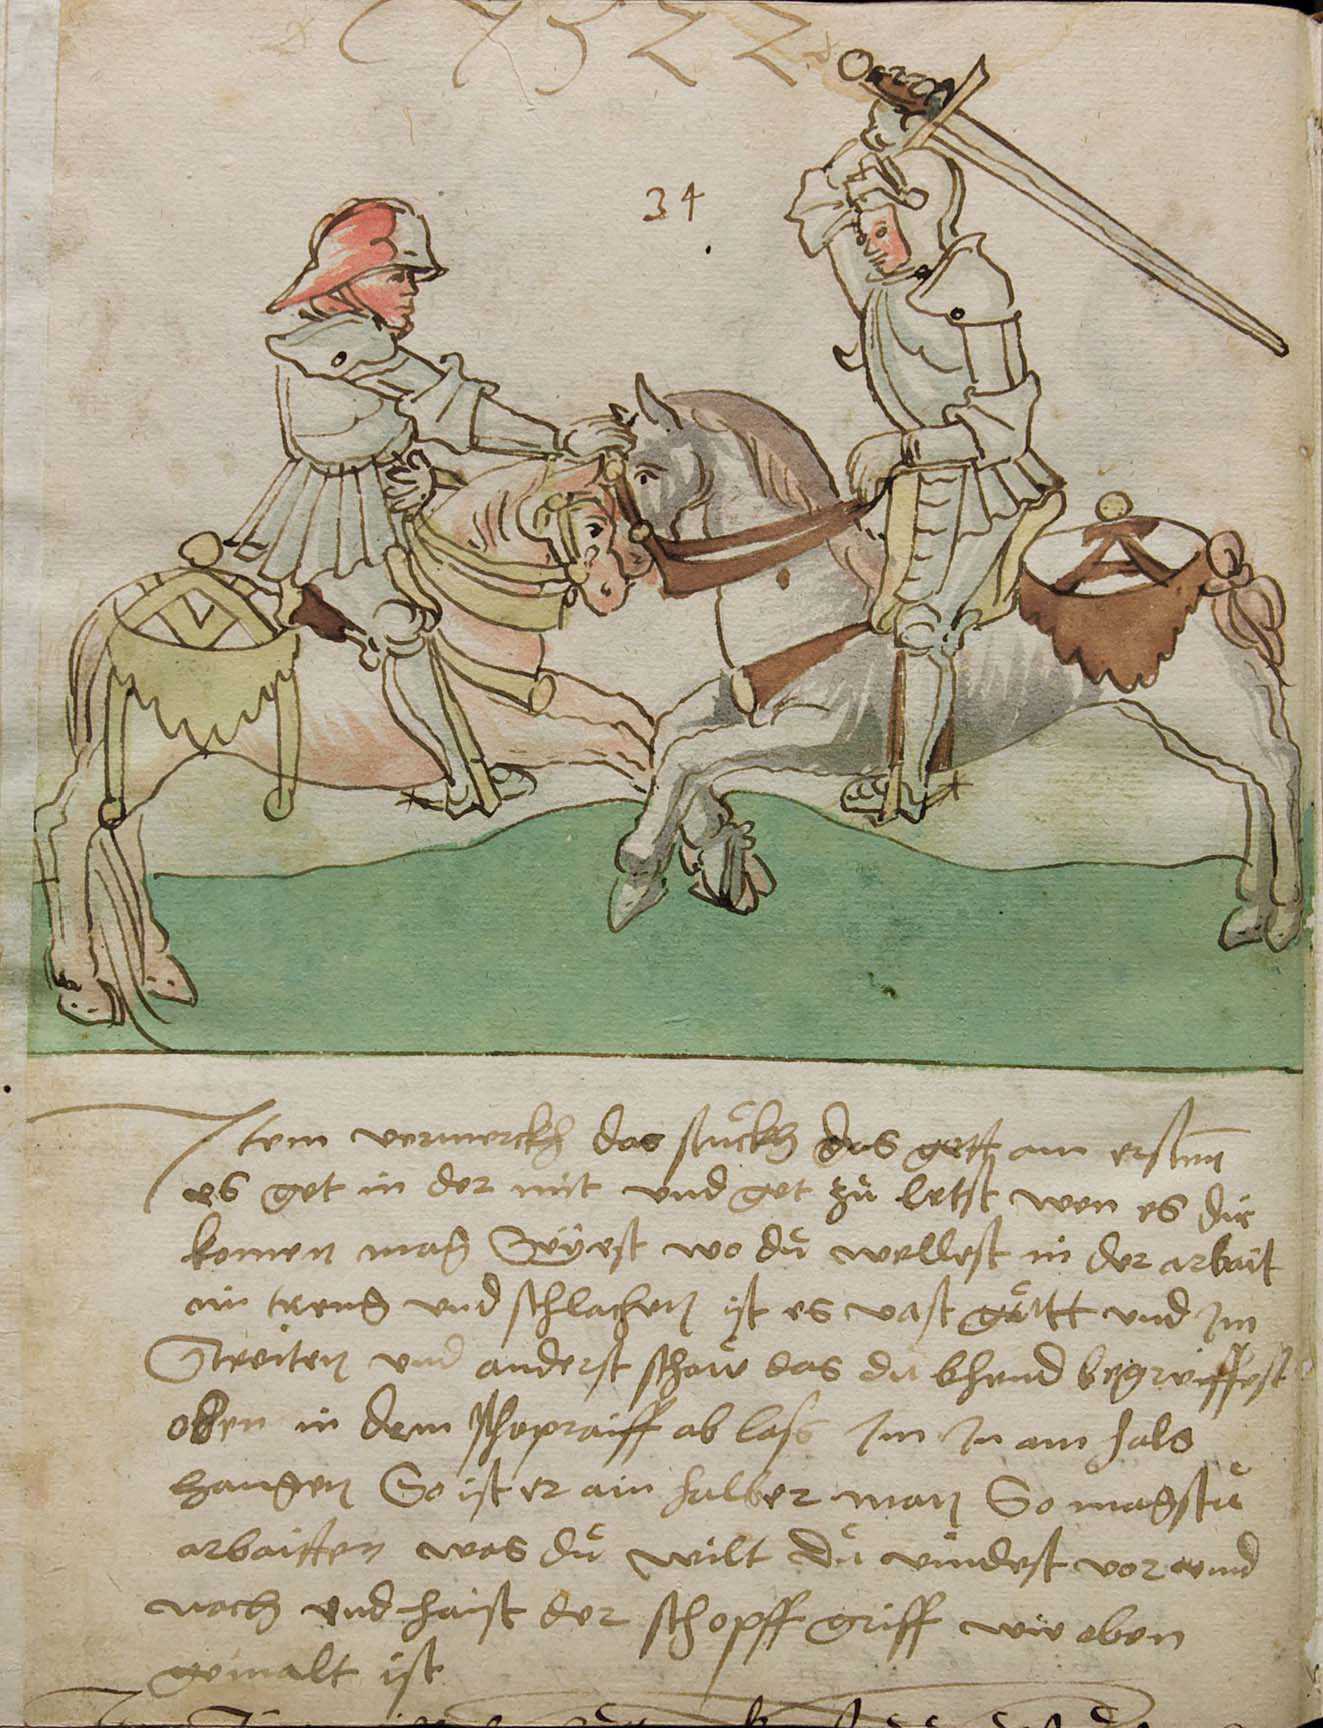 1522
34
Item vermerckh das stuckh das gett am ersten
es get in der mit und get zů letst wen es dir
komen mag Seÿest wo dů wellest in der arbait
im treng und schlachen ist es vast gůtt und Im
Streiten und anderst schaw das du bhend begreiffest
oben in dem schopraiff ab lass Im In am hals
hangen So ist er ain halber man So magstu
arbaitten was dů wilt Dů vindest vor und
noch und haist der schopff griff wie oben
gemalt ist